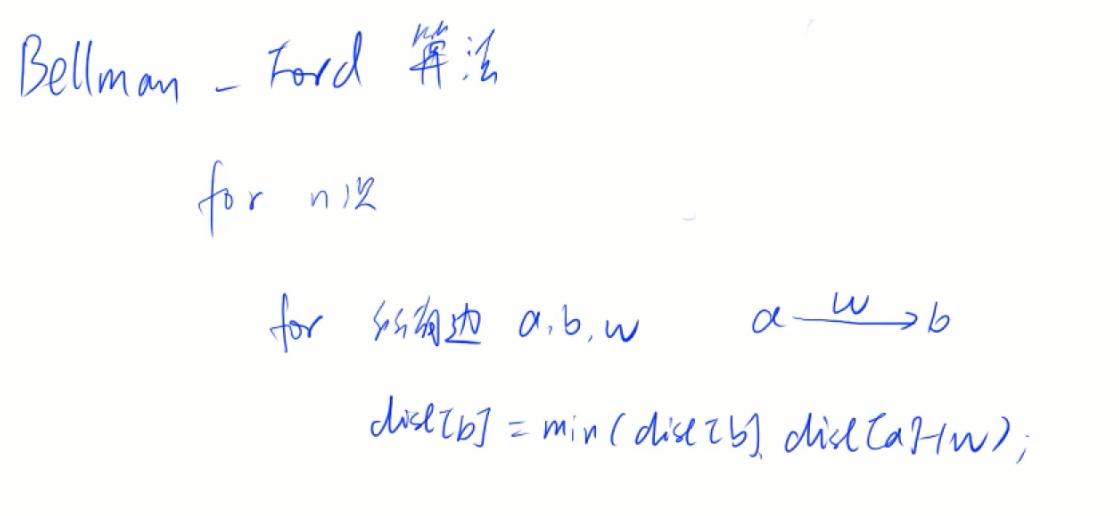 Bellman - Ford 算法
for n次
for 所有边 a,b,w a w b
dist[b] = min(dist[b], dist[a]+w);